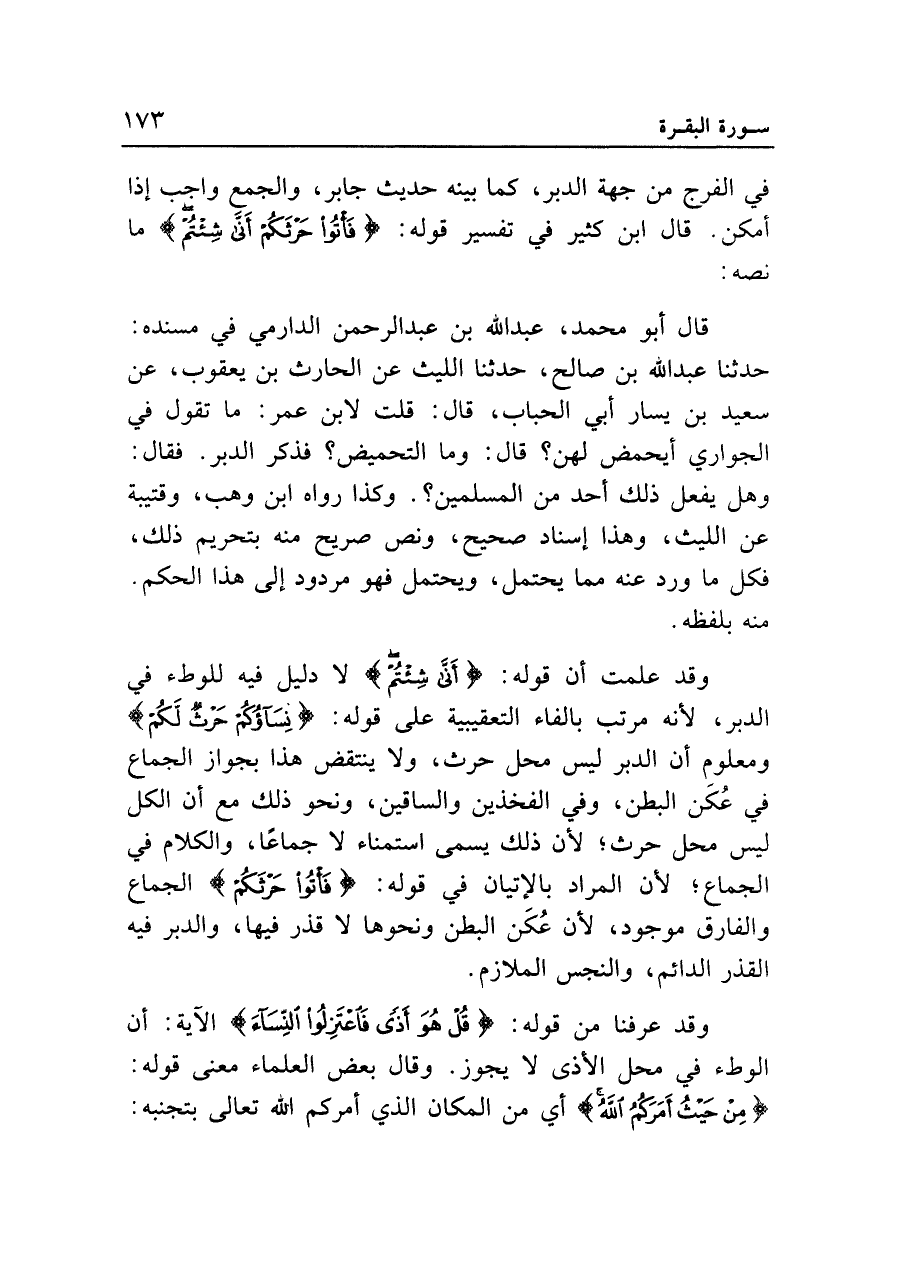 سـورة البقـرة ١٧٣
في الفرج من جهة الدبر، كما بينه حديث جابر، والجمع واجب إذا
أمكن. قال ابن كثير في تفسير قوله: ﴿ فَأْتُوا۟ حَرْثَكُمْ أَنَّىٰ شِئْتُمْ ۖ ﴾ ما
نصه:
قال أبو محمد، عبدالله بن عبدالرحمن الدارمي في مسنده:
حدثنا عبدالله بن صالح، حدثنا الليث عن الحارث بن يعقوب، عن
سعيد بن يسار أبي الحباب، قال: قلت لابن عمر: ما تقول في
الجواري أيحمض لهن؟ قال: وما التحميض؟ فذكر الدبر. فقال:
وهل يفعل ذلك أحد من المسلمين؟. وكذا رواه ابن وهب، وقتيبة
عن الليث، وهذا إسناد صحيح، ونص صريح منه بتحريم ذلك،
فكل ما ورد عنه مما يحتمل، ويحتمل فهو مردود إلى هذا الحكم.
منه بلفظه.
وقد علمت أن قوله: ﴿ أَنَّىٰ شِئْتُمْ ۖ ﴾ لا دليل فيه للوطء في
الدبر، لأنه مرتب بالفاء التعقيبية على قوله: ﴿ نِسَآؤُكُمْ حَرْثٌ لَّكُمْ ﴾
ومعلوم أن الدبر ليس محل حرث، ولا ينتقض هذا بجواز الجماع
في عُكَن البطن، وفي الفخذين والساقين، ونحو ذلك مع أن الكل
ليس محل حرث؛ لأن ذلك يسمى استمناء لا جماعًا، والكلام في
الجماع؛ لأن المراد بالإتيان في قوله: ﴿ فَأْتُوا۟ حَرْثَكُمْ ﴾ الجماع
والفارق موجود، لأن عُكَن البطن ونحوها لا قذر فيها، والدبر فيه
القذر الدائم، والنجس الملازم.
وقد عرفنا من قوله: ﴿ قُلْ هُوَ أَذًى فَٱعْتَزِلُوا۟ ٱلنِّسَآءَ ﴾ الآية: أن
الوطء في محل الأذى لا يجوز. وقال بعض العلماء معنى قوله:
﴿ مِنْ حَيْثُ أَمَرَكُمُ ٱللَّهُ ۚ ﴾ أي من المكان الذي أمركم الله تعالى بتجنبه: